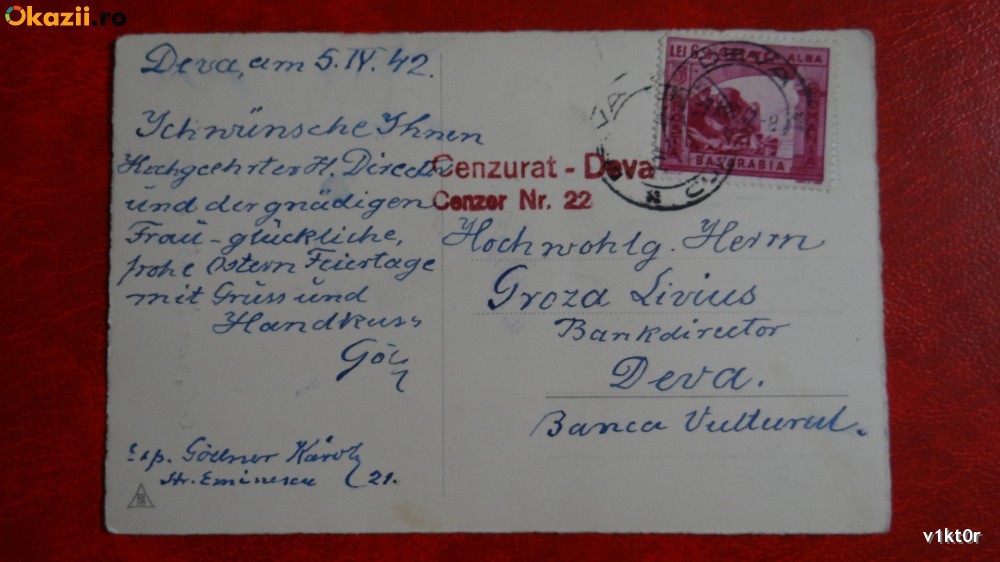 Okazii.ro
Deva, am 5.IV.42.
Ich wünsche Ihnen
Hochgeehrter H. Director
und der gnädigen
Frau - glückliche,
frohe Ostern Feiertage
mit Gruss und
Handkuss
Cenzurat - Deva
Cenzor Nr. 22
LEI 6
ALBA
BASARABIA
Hochwohlg. Herrn
Groza Livius
Bankdirector
Deva.
Banca Vulturul.
Exp. Göllner Károly
Str. Eminescu 21.
v1kt0r